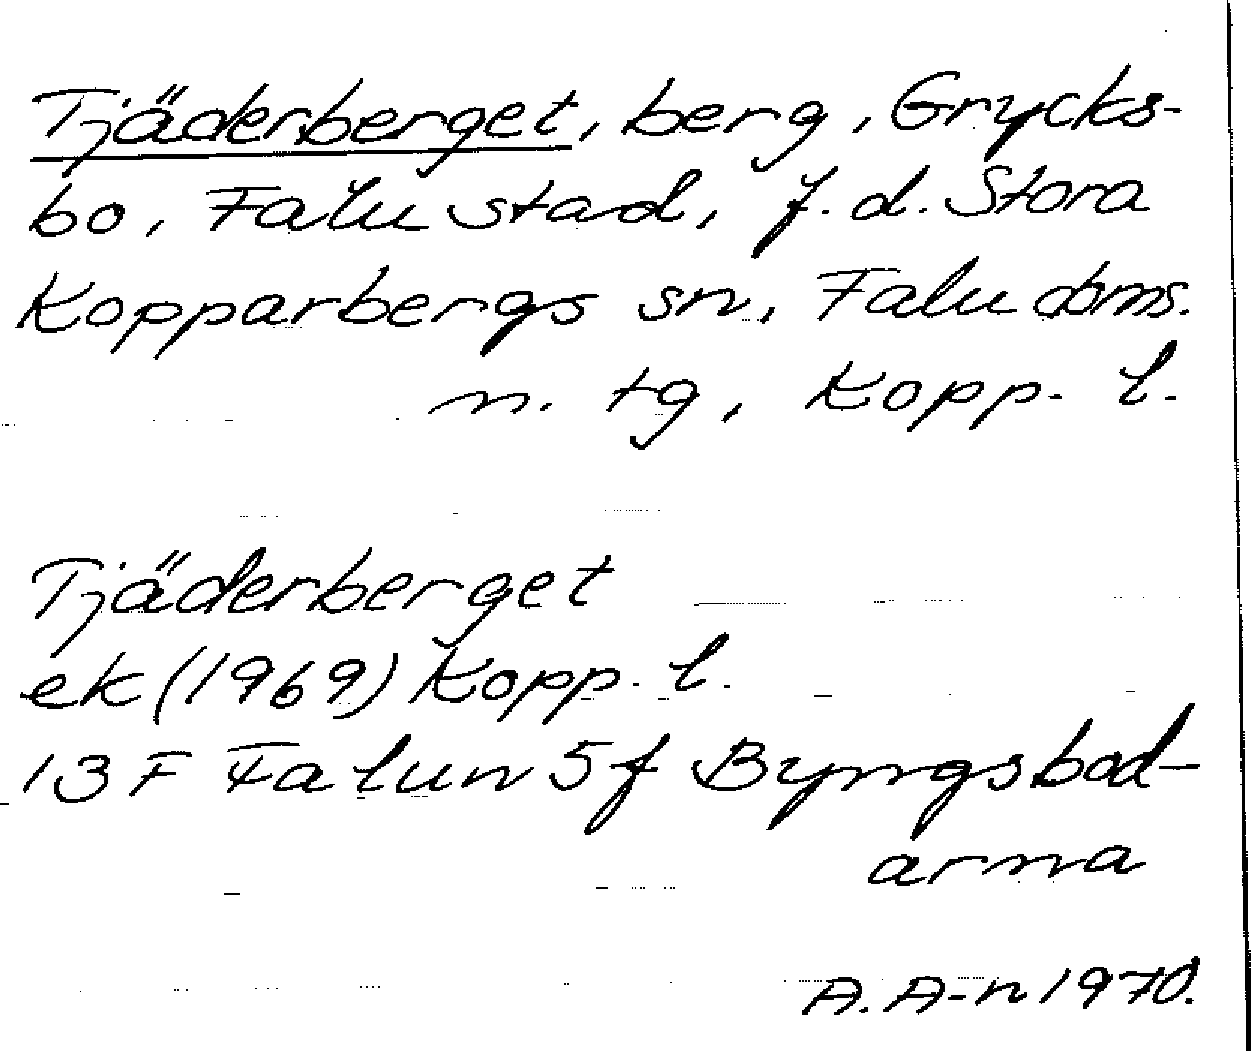 Tjäderberget, berg, Grycks-
bo, Falu stad, f.d. Stora
Kopparbergs sn, Falu doms.
n. tg, Kopp. l.
Tjäderberget
ek (1969) Kopp. l.
13 F Falun 5 f Byngsbod-
arna
A. A-n 1970.